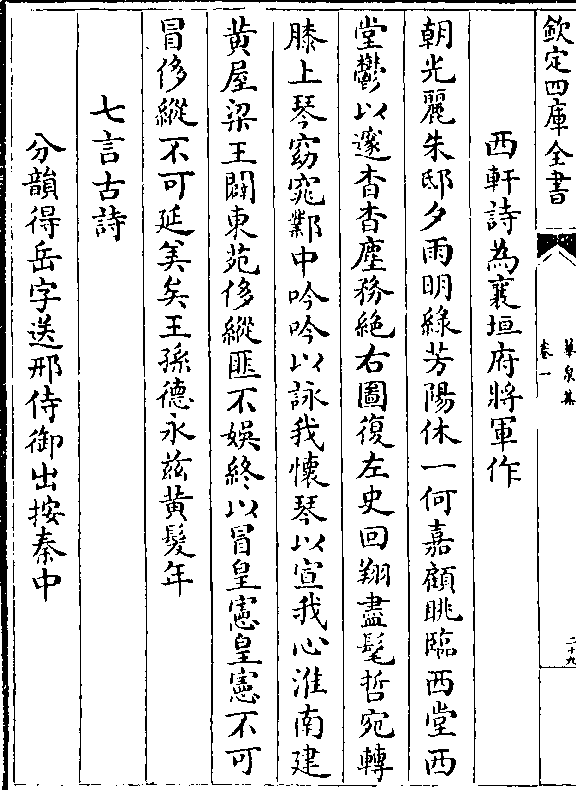 欽定四庫全書
華泉集
卷一
二十九
西軒詩為襄垣府將軍作
朝光麗朱邸夕雨明綠芳陽休一何嘉顧眺臨西堂西
堂鬱以邃杳杳塵務絕右圖復左史回翔盡髦哲宛轉
膝上琴窈窕鄴中吟吟以詠我懷琴以宣我心淮南建
黃屋梁王闢東苑侈縱匪不娛終以冒皇憲皇憲不可
冒侈縱不可延美矣王孫德永兹黃髮年
七言古詩
分韻得岳字送邢侍御出按秦中